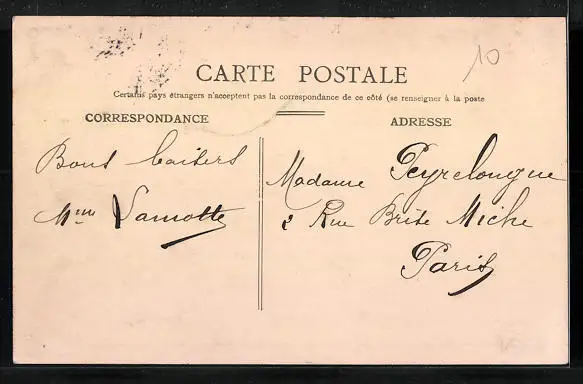 10
CARTE POSTALE
Certains pays étrangers n'acceptent pas la correspondance de ce côté (se renseigner à la poste
CORRESPONDANCE
Bons baisers
Mme Lamotte
ADRESSE
Madame Peyrelongue
2 Rue Brise Miche
Paris